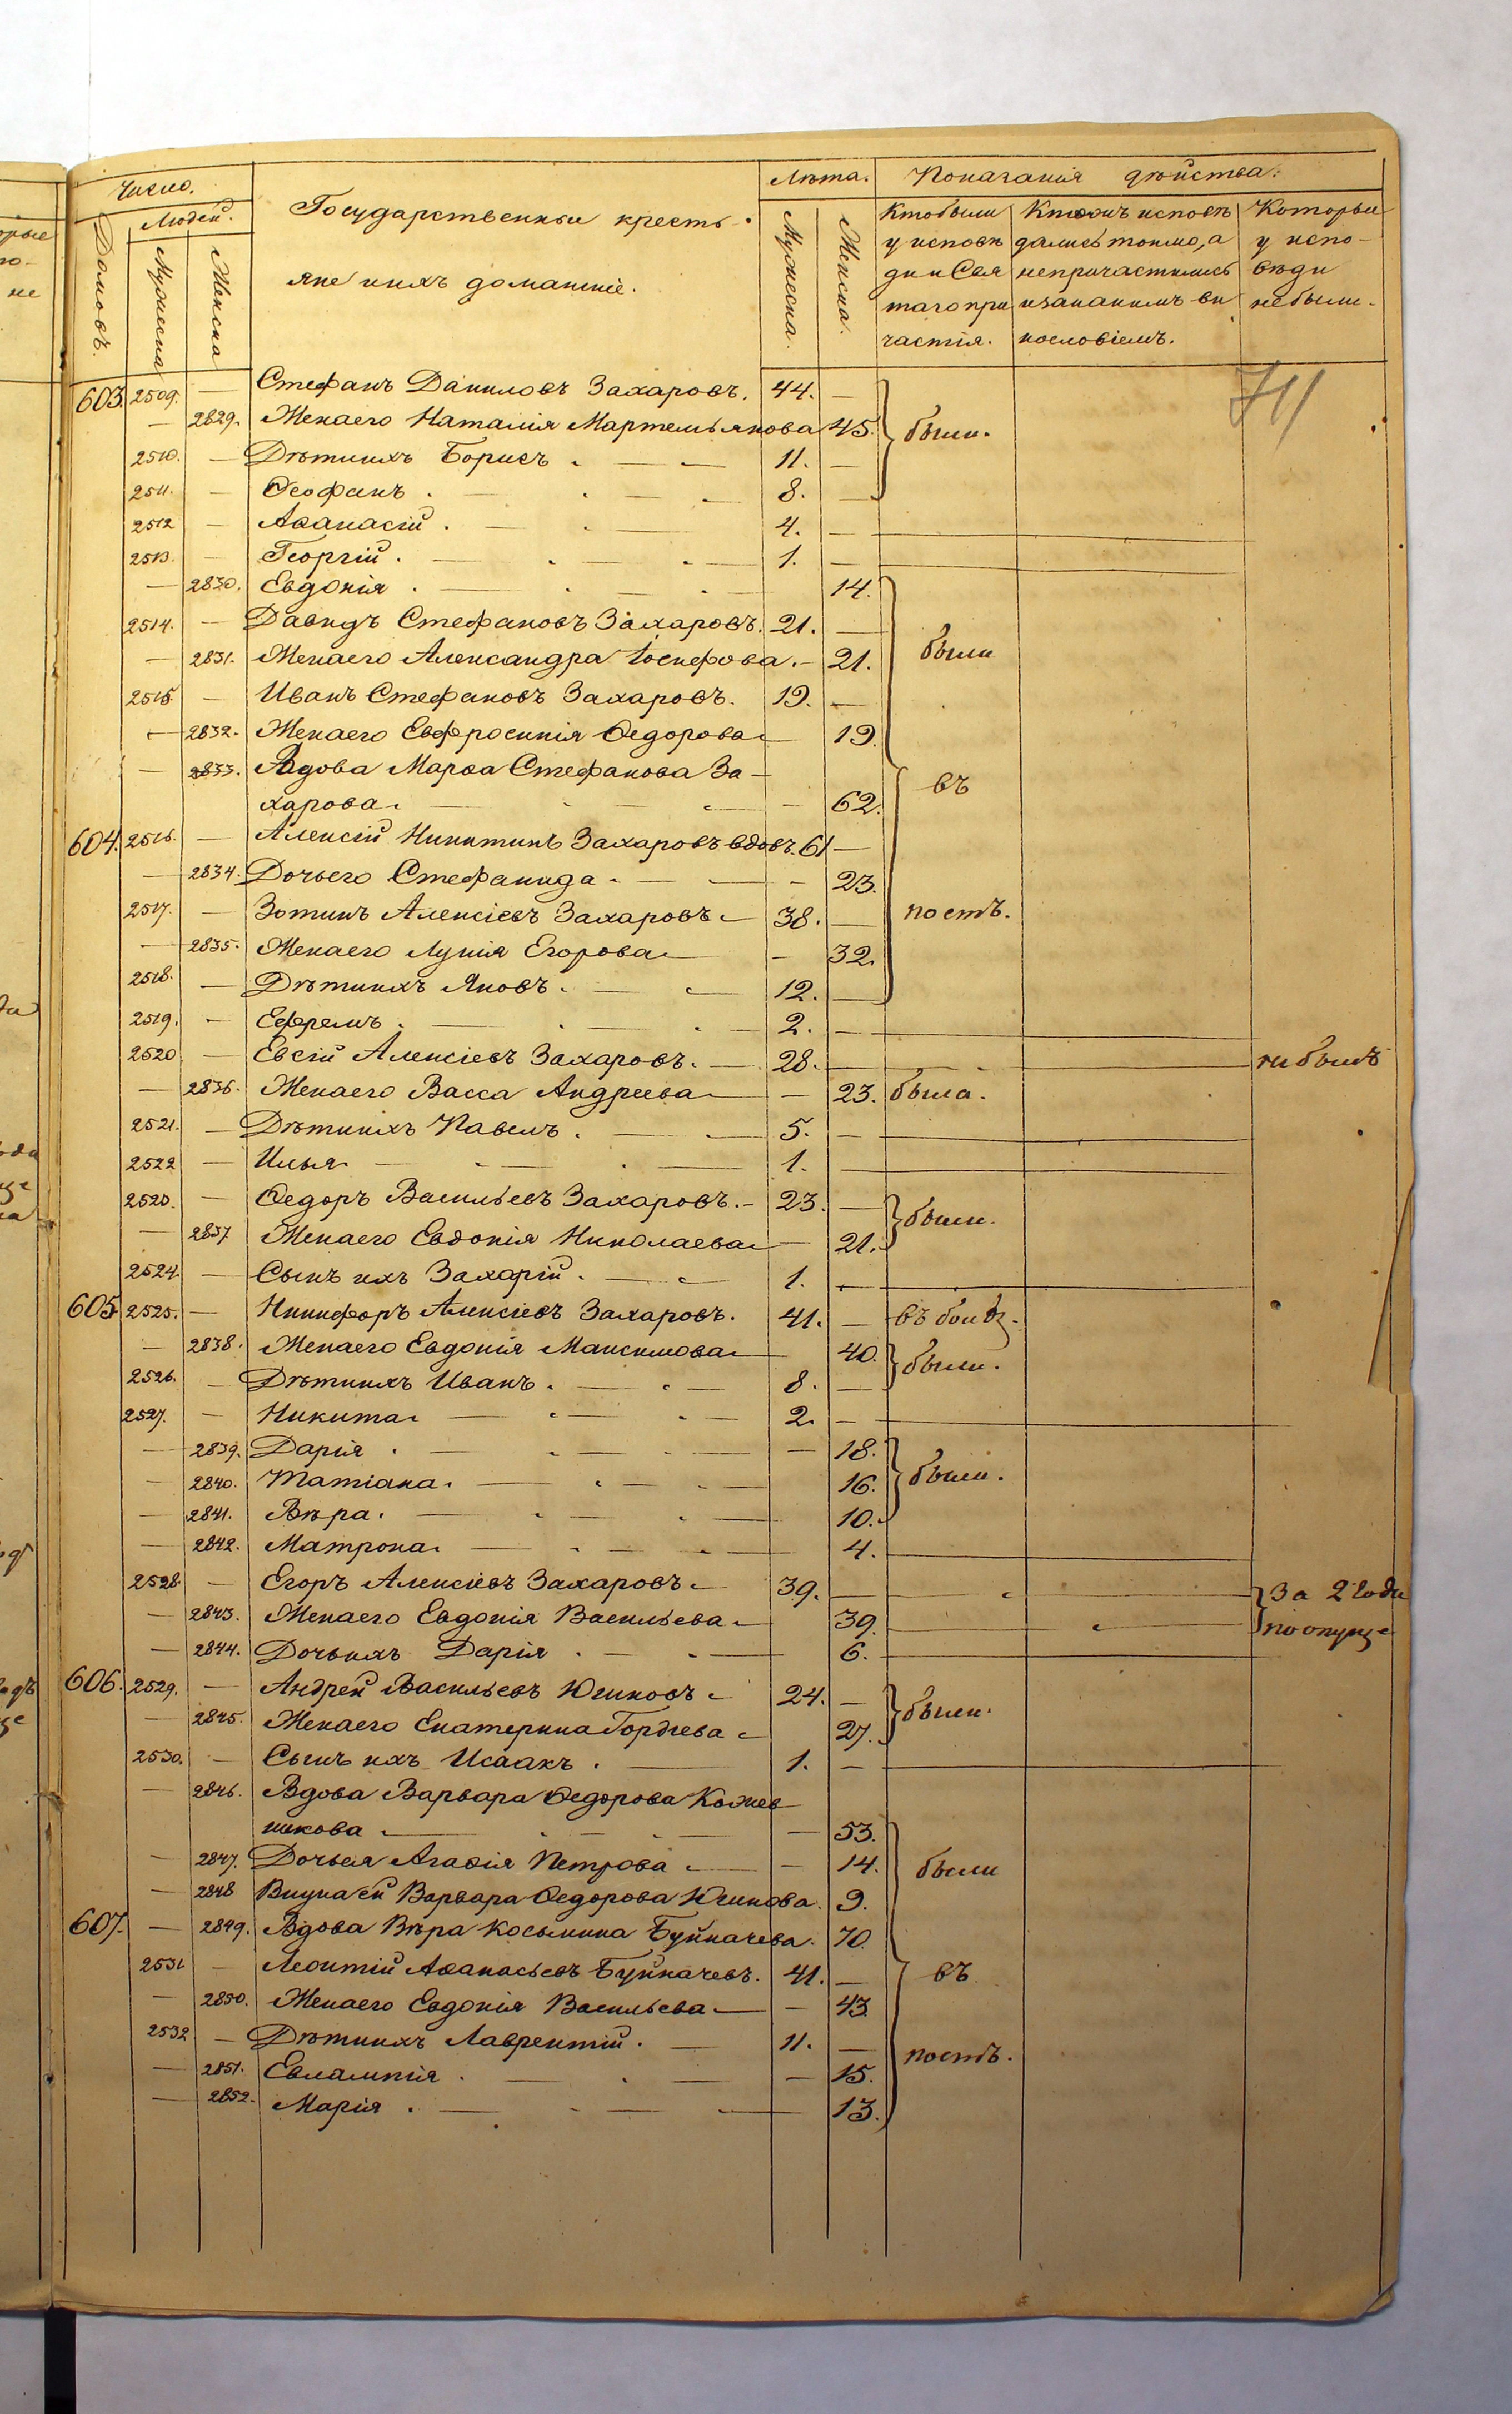 Число.
Людей.
Домовъ.
Мужеска
Женска
Государственныи кресть-
яне иихъ домашніе.
Лѣта.
Мужеска.
Женска.
Показанія дѣйства.
Кто были
у исповѣ
ди и Свя
таго при
частія.
Кто
исповѣ
дались токмо, а
непричастились
ви
нословіемъ.
Которыи
у испо-
вѣди
не были.
711
603. 2509. — Стефанъ Даниловъ Захаровъ. 44. —
— 2829. Женаего Наталія Мартемьянова 45. были.
2510. — Дѣтиихъ Борисъ. 11. —
2511. — Ѳеофанъ. 8. —
2512 — Аѳанасій. 4. —
2513. — Георгій. 1. —
— 2830. Евдокія. 14.
2514. — Давидъ Стефановъ Захаровъ. 21. —
— 2831. Женаего Александра Іосифова. — 21. были
2515 — Иванъ Стефановъ Захаровъ. 19. —
— 2832. Женаего Евфросинія Ѳедорова 19.
— 2833. Вдова Марѳа Стефанова За-
харова. — 62. въ
604. 2516. — Алексій Никитинъ Захаровъ вдовъ. 61 —
— 2834. Дочьего Стефанида — 23.
2517. — Зотикъ Алексіевъ Захаровъ 38. — постъ.
— 2835. Женаего Лукія Егорова — 32.
2518. — Дѣтиихъ Яковъ. 12. —
2519. — Ефремъ. 2. —
2520 — Евсій Алексіевъ Захаровъ. 28. — не былъ
— 2836. Женаего Васса Андреева — 23. была.
2521. — Дѣтиихъ Павелъ. 5. —
2522 — Илья 1. —
2523. — Ѳедоръ Васильевъ Захаровъ. 23. — были.
— 2837 Женаего Евдокія Николаева — 21.
2524. — Сынъ ихъ Захарій. 1. —
605. 2525. — Никифоръ Алексіевъ Захаровъ. 41. —
— 2838. Женаего Евдокія Максимова 40. были.
2526. — Дѣтиихъ Иванъ. 8. —
2527. — Никита 2. —
— 2839. Дарія. — 18.
— 2840. Татіана. 16. были.
— 2841. Вѣра. 10.
— 2842. Матрона. 4.
2528. — Егоръ Алексіевъ Захаровъ 39. — За 2 года
— 2843. Женаего Евдокія Васильева 39. по опуще
— 2844. Дочьихъ Дарія. 6.
606. 2529. — Андрей Васильевъ Югиновъ 24. — были.
— 2845. Женаего Екатерина Гордѣева 27.
2530. — Сынъ ихъ Исаакъ. 1. —
— 2846. Вдова Варвара Ѳедорова Кожев
никова — 53.
— 2847. Дочьея Агаѳія Петрова — 14. были
— 2848 Внука ей Варвара Ѳедорова Югинова. 9.
607. — 2849. Вдова Вѣра Косьмина Буйначева. 70
2531 — Леонтій Аѳанасьевъ Буйначевъ. 41. — въ
— 2850. Женаего Евдокія Васильева — 43
2532 — Дѣтиихъ Лаврентій. 11. — постъ.
— 2851. Евлампія. — 15.
— 2852. Марія. 13.